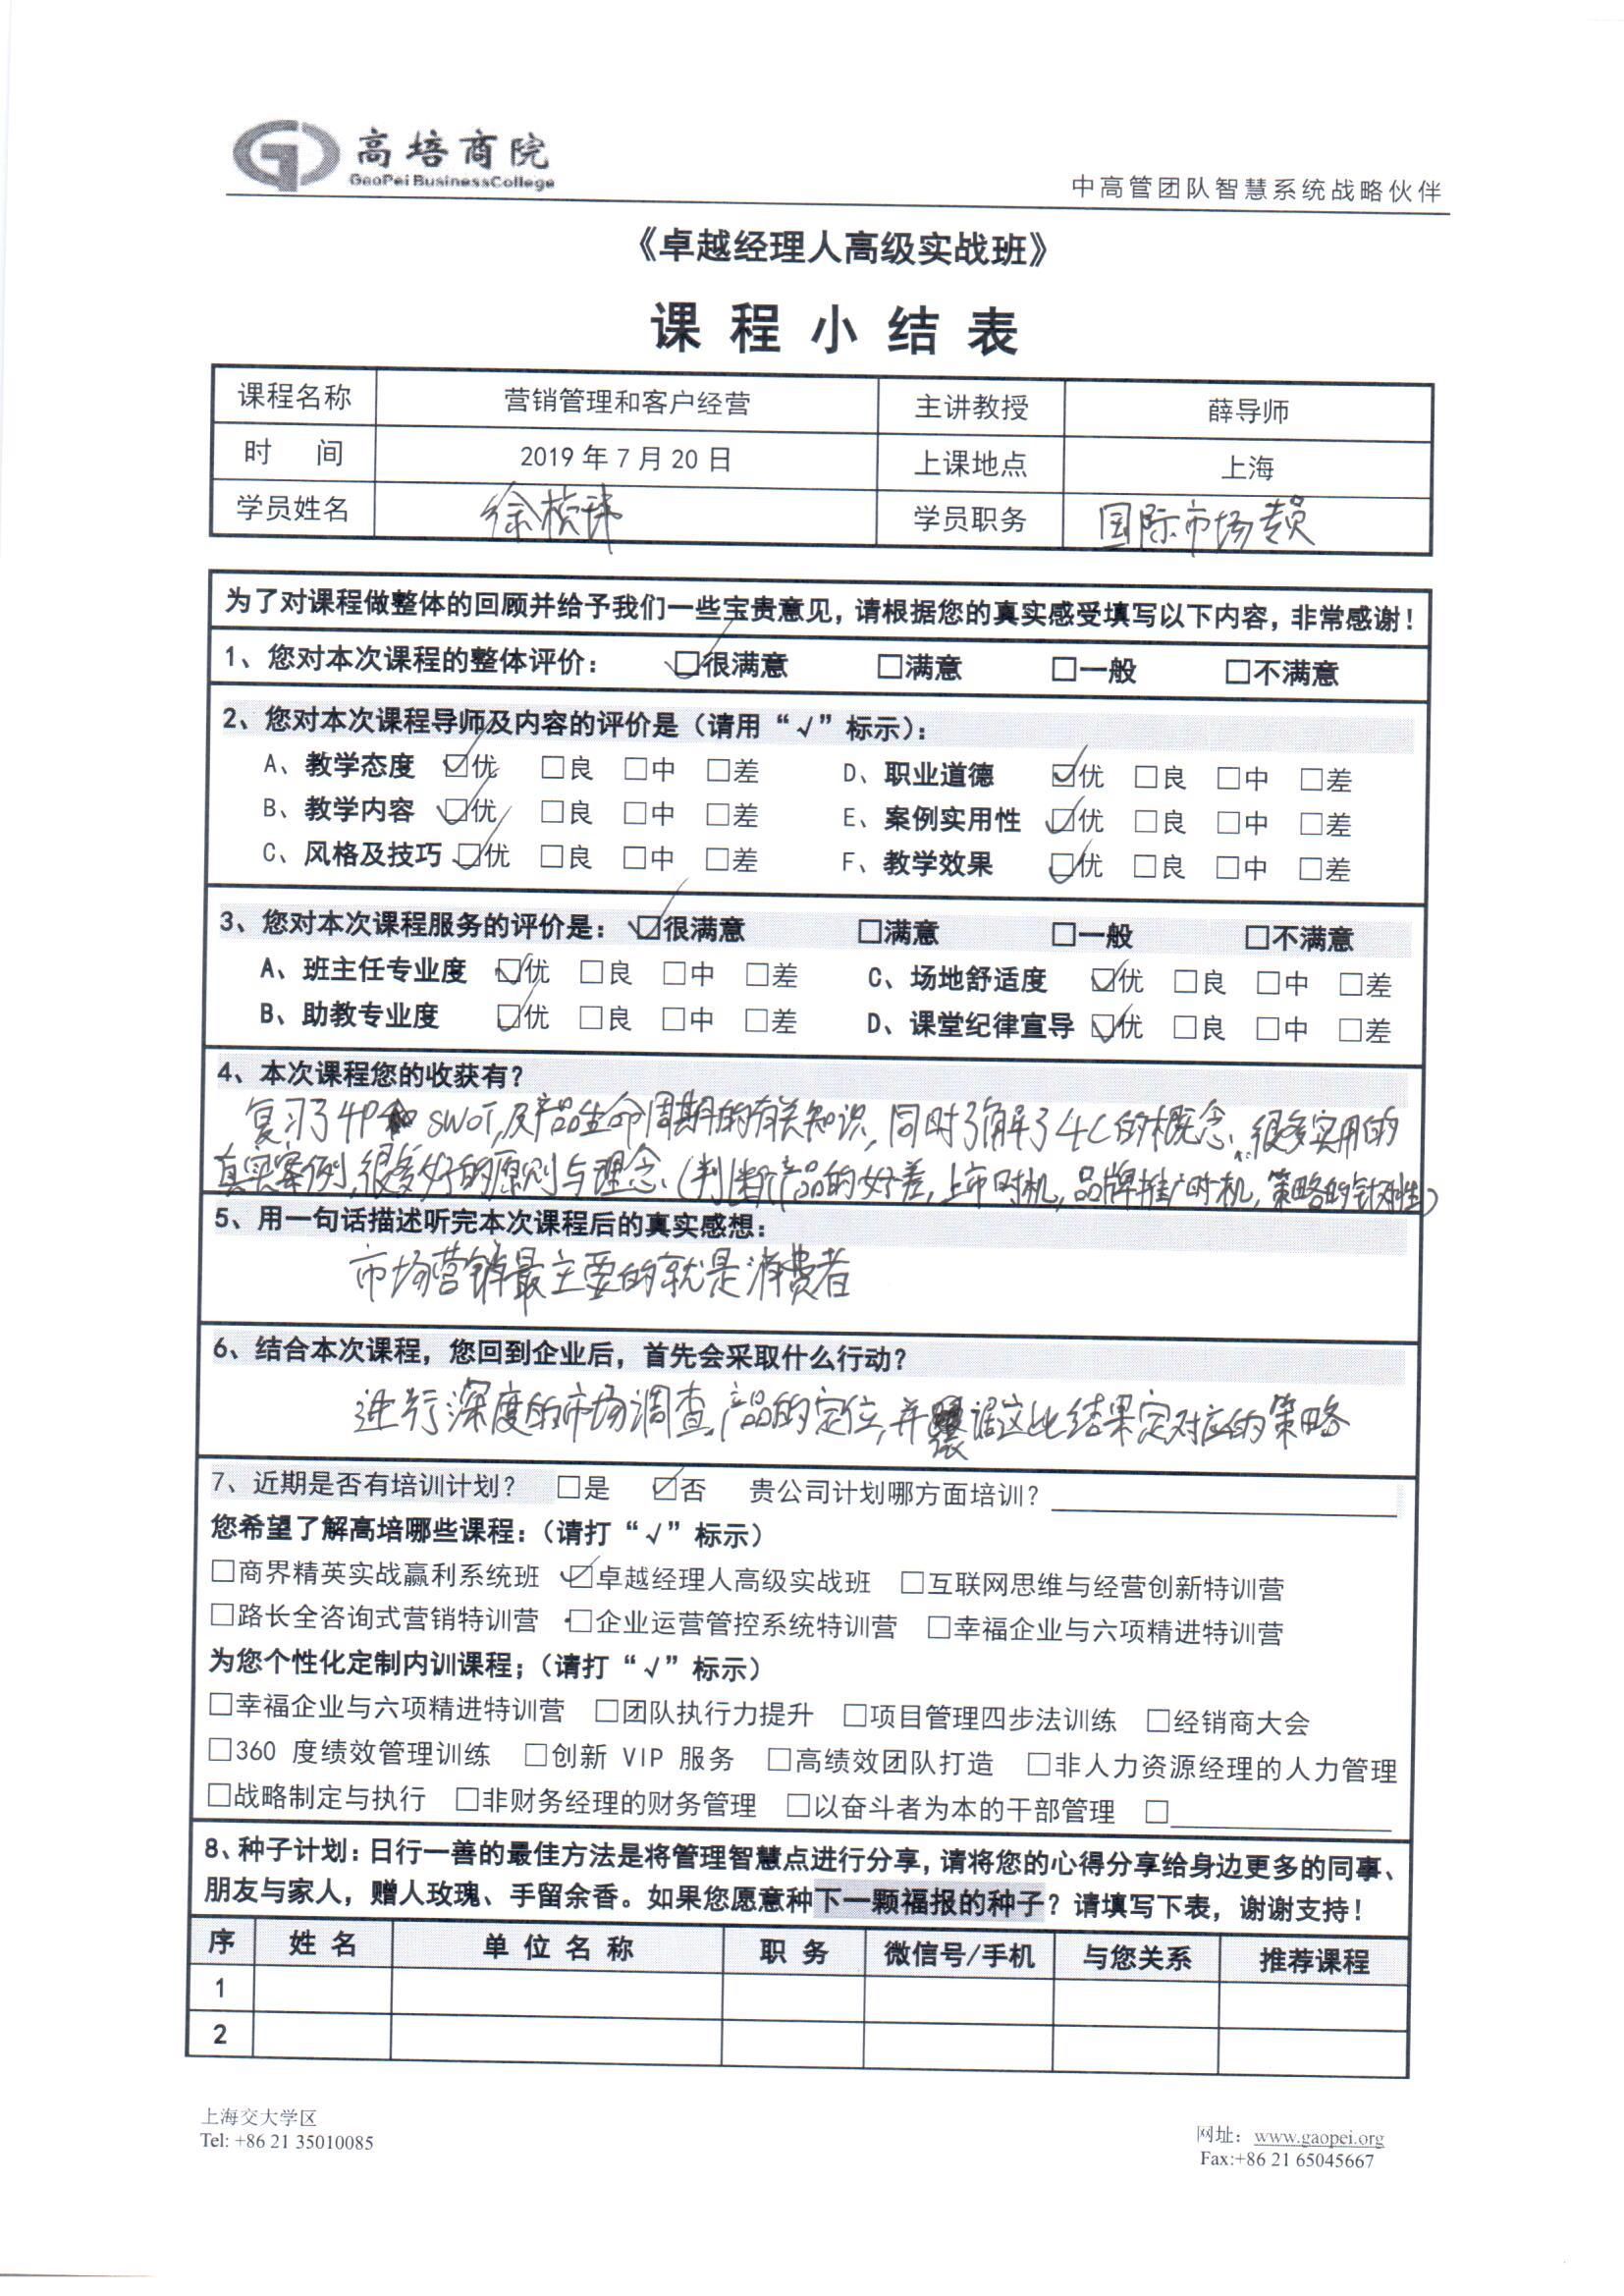 高培商院
GaoPei BusinessCollege
中高管团队智慧系统战略伙伴
《卓越经理人高级实战班》
课程小结表
课程名称 营销管理和客户经营 主讲教授 薛导师
时 间 2019年7月20日 上课地点 上海
学员姓名 徐 学员职务 国际市场专员
为了对课程做整体的回顾并给予我们一些宝贵意见,请根据您的真实感受填写以下内容,非常感谢!
1、您对本次课程的整体评价: ☑很满意 □满意 □一般 □不满意
2、您对本次课程导师及内容的评价是(请用“√”标示):
A、教学态度 ☑优 □良 □中 □差 D、职业道德 ☑优 □良 □中 □差
B、教学内容 ☑优 □良 □中 □差 E、案例实用性 ☑优 □良 □中 □差
C、风格及技巧 ☑优 □良 □中 □差 F、教学效果 ☑优 □良 □中 □差
3、您对本次课程服务的评价是: ☑很满意 □满意 □一般 □不满意
A、班主任专业度 ☑优 □良 □中 □差 C、场地舒适度 ☑优 □良 □中 □差
B、助教专业度 ☑优 □良 □中 □差 D、课堂纪律宣导 ☑优 □良 □中 □差
4、本次课程您的收获有?
复习了4P和SWOT,及产品生命周期的有关知识,同时了解了4C的概念、很多实用的
真实案例,很多好的原则与理念、(判断产品的好差,上市时机,品牌推广时机,策略的针对性)
5、用一句话描述听完本次课程后的真实感想:
市场营销最主要的就是消费者
6、结合本次课程,您回到企业后,首先会采取什么行动?
进行深度的市场调查,产品的定位,并 这些结果定对应的策略
7、近期是否有培训计划? □是 ☑否 贵公司计划哪方面培训?
您希望了解高培哪些课程:(请打“√”标示)
□商界精英实战赢利系统班 ☑卓越经理人高级实战班 □互联网思维与经营创新特训营
□路长全咨询式营销特训营 □企业运营管控系统特训营 □幸福企业与六项精进特训营
为您个性化定制内训课程;(请打“√”标示)
□幸福企业与六项精进特训营 □团队执行力提升 □项目管理四步法训练 □经销商大会
□360 度绩效管理训练 □创新 VIP 服务 □高绩效团队打造 □非人力资源经理的人力管理
□战略制定与执行 □非财务经理的财务管理 □以奋斗者为本的干部管理 □
8、种子计划:日行一善的最佳方法是将管理智慧点进行分享,请将您的心得分享给身边更多的同事、
朋友与家人,赠人玫瑰、手留余香。如果您愿意种下一颗福报的种子?请填写下表,谢谢支持!
序 姓名 单位名称 职务 微信号/手机 与您关系 推荐课程
1
2
上海交大学区
Tel: +86 21 35010085
网址: www.gaopei.org
Fax:+86 21 65045667